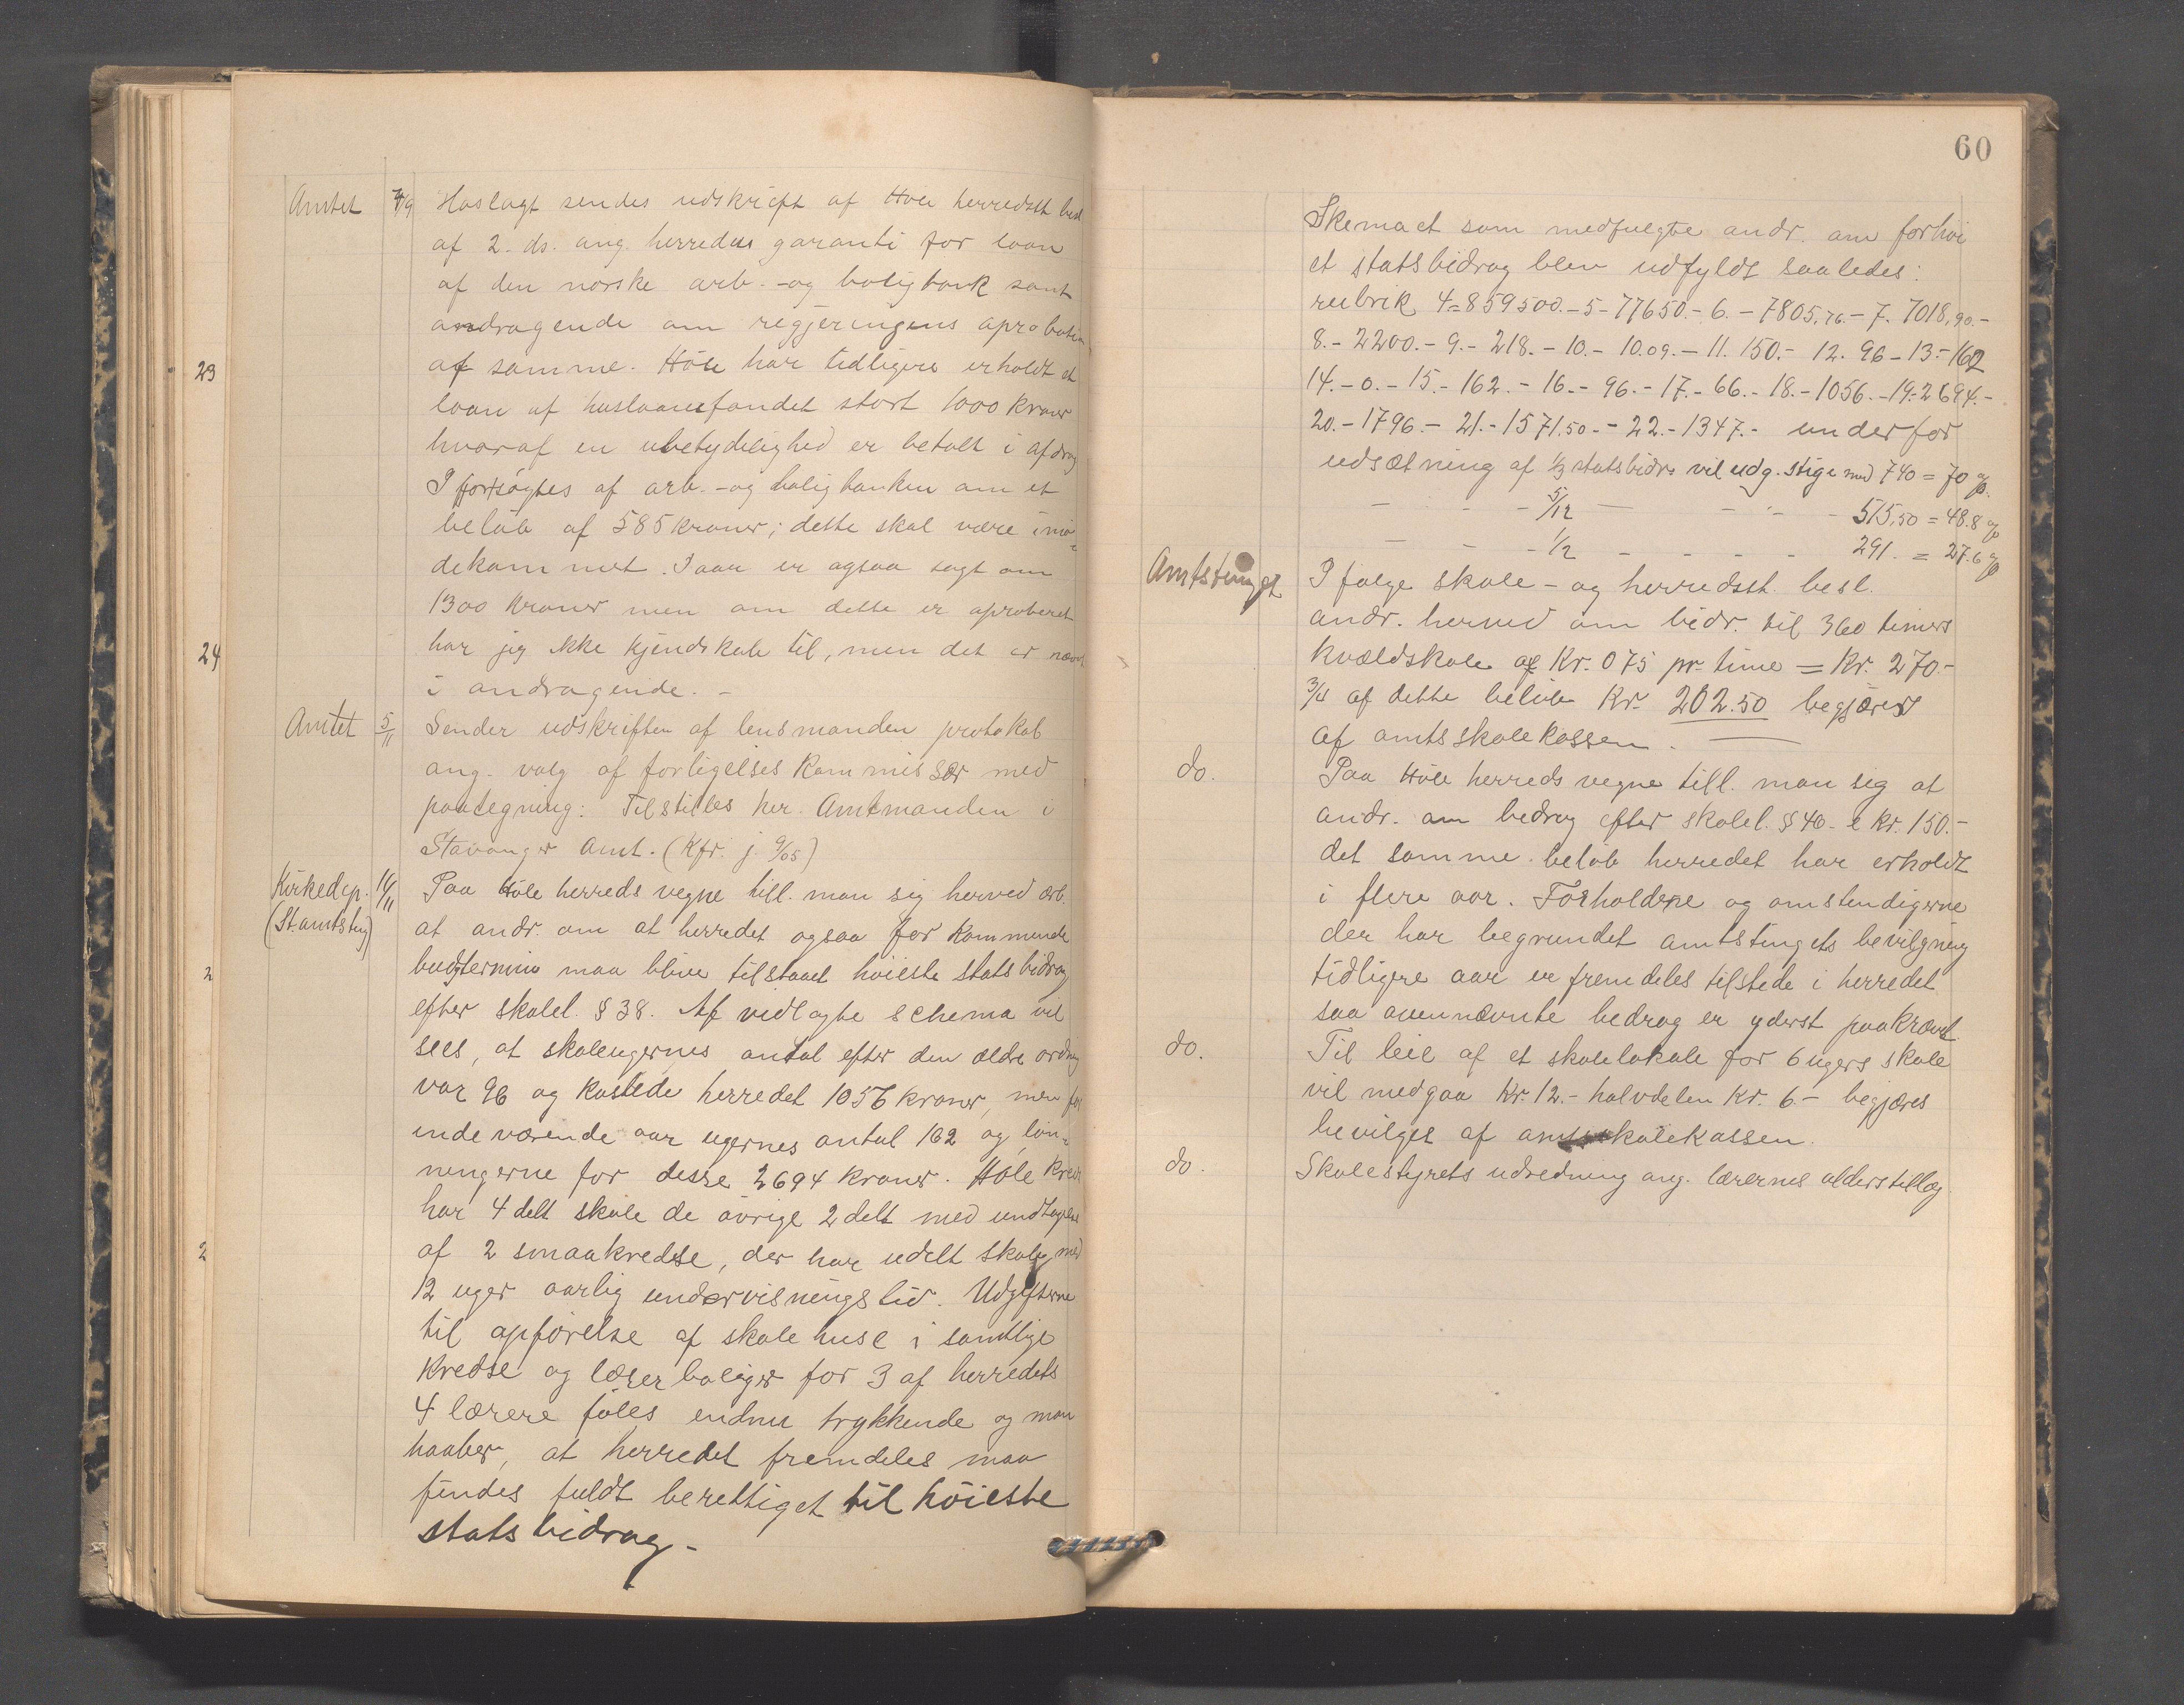 Amtet 4/9 Hoslagt sendes udskrift af Höle herredsst. besl.
af 2. ds. ang. herredets garanti for laan
af den norske arb.- og boligbank samt
andragende om regjeringens aprobation
23
af samme. Höle har tidligere erholdt et
laan af huslaanefondet stort 1000 kroner
hvoraf en ubetydelighed er betalt i afdrag
I fjor søgtes af arb.- og boligbanken om et
belöb af 585 kroner; dette skal være imö-
dekommet. I aar er ogsaa søgt om
1300 kroner men om dette er aproberet
24
har jeg ikke kjendskab til, men det er nævnt
i andragende. -
Amtet 5/11 Sender udskriften af lensmanden protokol
ang. valg af forligelses kommissær med
paategning: Tilstilles hr. Amtmanden i
Stavanger Amt. (Kfr. j. 9/05)
Kirkedep. 11/11 Paa Höle herreds vegne till. man sig herved ærb.
(St. amtsting) at andr. om at herredet ogsaa for kommende
2
budgtermin maa blive tilstaaet höieste statsbidrag
efter skolel. § 38. Af vedlagte schema vil
sees, at skoleugernes antal efter den ældre ordning
var 96 og kostede herredet 1056 kroner, men for
indeværende aar ugernes antal 162 og løn-
ningerne for desse 2694 kroner. Höle kreds
har 4 delt skole de övrige 2 delt med undtagelse
2
af 2 smaakredse, der har udelt skole med
12 uger aarlig undervisningstid. Udgifterne
til opförelse af skolehuse i samtlige
kredse og lærerboliger for 3 af herredets
4 lærere föles endnu trykkende og man
haaber, at herredet fremdeles maa
findes fuldt berettiget til höieste
statsbidrag -
60
Skemaet som medfulgte andr. om forhöi
et statsbidrag blev udfyldt saaledes:
rubrik 4 = 859500. - 5 - 77650. - 6. - 7805,76. - 7. 7018,90. -
8. - 2200. - 9. - 218. - 10. - 10.09. - 11. 150. - 12. 96 - 13. - 162
14. - 0. - 15. - 162. - 16. - 96. - 17. - 66. - 18. - 1056. - 19. - 2694. -
20. - 1796. - 21. - 1571,50. - 22. - 1347. - under for
udsætning af 1/3 statsbidr. vil udg. stige med 740 = 70 %.
- - - 5/12 - - - - 515,50 = 48.8 %
- - - 1/2 - - - - 291. = 27.6 %
Amtstinget I følge skole- og herredsst. besl.
andr. herved om bidr. til 360 timers
kvældskole af Kr. 075 pr. time = Kr. 270.-
3/4 af dette belöb Kr. 202.50 begjæres
af amtsskolekassen.
do. Paa Höle herreds vegne till. man sig at
andr. om bedrag efter skolel. § 40 - e kr. 150.-
det samme belöb herredet har erholdt
i flere aar. Forholdene og omstendigerne
der har begrundet amtstingets bevilgning
tidligere aar er fremdeles tilstede i herredet
saa ovennævnte bedrag er yderst paakrævet.
do. Til leie af et skolelokale for 6 ugers skole
vil medgaa Kr. 12.- halvdelen Kr. 6.- begjæres
bevilget af amtsskolekassen.
do. Skolestyrets udredning ang. lærernes alderstillæg